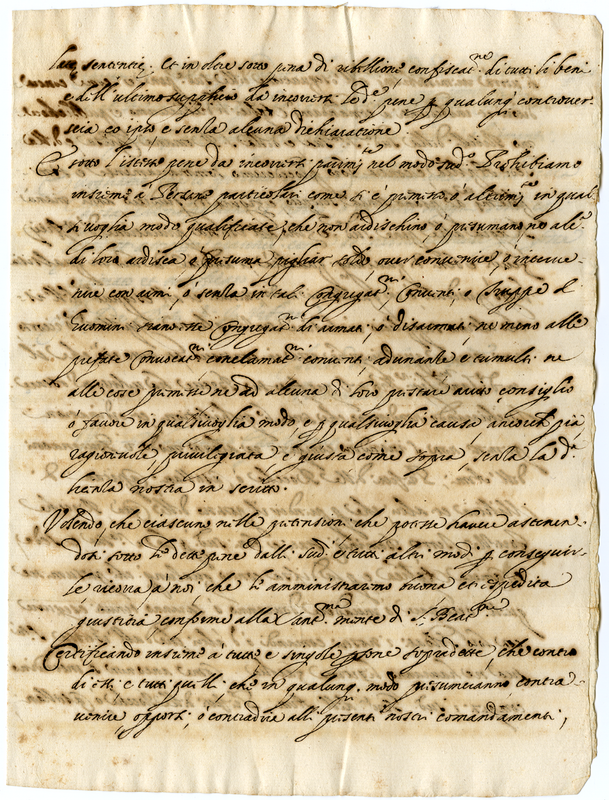 late sententie. Et in oltre sotto pena di ribellione confiscat.ne di tutti li beni
e dell'ultimo supplicio da incorrersi le d.e pene p qualunq controver,
scia eo ipso e senza alcuna dichiaratione
E sotto l'istesse pene da incorrersi parim.te nel modo sud.o Prohibiamo
insieme à Persone particolari come si è permesso, ò altrim.te in qual
si voglia modo qualificate, che non ardischino, ò presumano ne alc.o
di loro ardisca ò presuma pigliar soldo, over convenire, ò interve
nire con armi, ò senza in tali Congregat.ni Conventi, ò Truppe d
huomini siano esse Congregat.ni di armati, ò disarmati, ne meno alle
prefate Convocat.ni conclamat.ni conventi adunanze e tumulti ne
alle cose premesse ne ad alcuna di loro prestare aiuto consiglio
ò favore in qualsivoglia modo, e p qualsivoglia causa ancorche pia
ragionevole, privilegiata e giusta come sopra, senza la d.a
licenza nostra in scritto.
Volendo, che ciascuno nelle pretensioni che potesse havere astenen,
dosi sotto le dette pene dalli sud.i e tutti altri modi p conseguir,
le ricorra à noi che le amministraremo buona et espedita
giustitia conforme alla Sant.ma mente di S. Beat.ne
Certificando insieme à tutte e singole psone sopradette, che contro
di essi e tutti quelli che in qualunq modo presumeranno contra,
venire opporsi, ò contradire alli presenti nostri comandamenti,